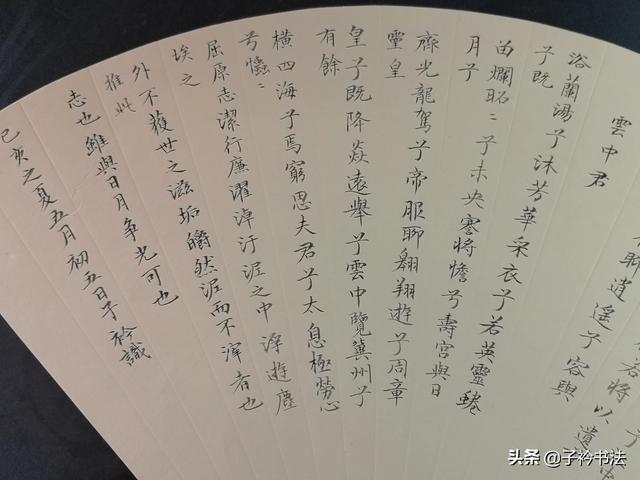 將以遺
聊逍遙兮容與
雲中君
浴蘭湯兮沐芳華采衣兮若英靈蜷
兮既
留爛昭〻兮未央蹇將憺兮壽宮與日
月兮
齊光龍駕兮帝服聊翱翔遊兮周章
靈皇
皇兮既降猋遠舉兮雲中覽冀州兮
有餘
橫四海兮焉窮思夫君兮太息極勞心
兮
屈原志潔行廉濯淖汙泥之中浮遊塵
埃之
外不獲世之滋垢皭然泥而不滓者也
推此
志也雖與日月爭光可也
己亥之夏五月初五日子衿識
头条 @子衿书法